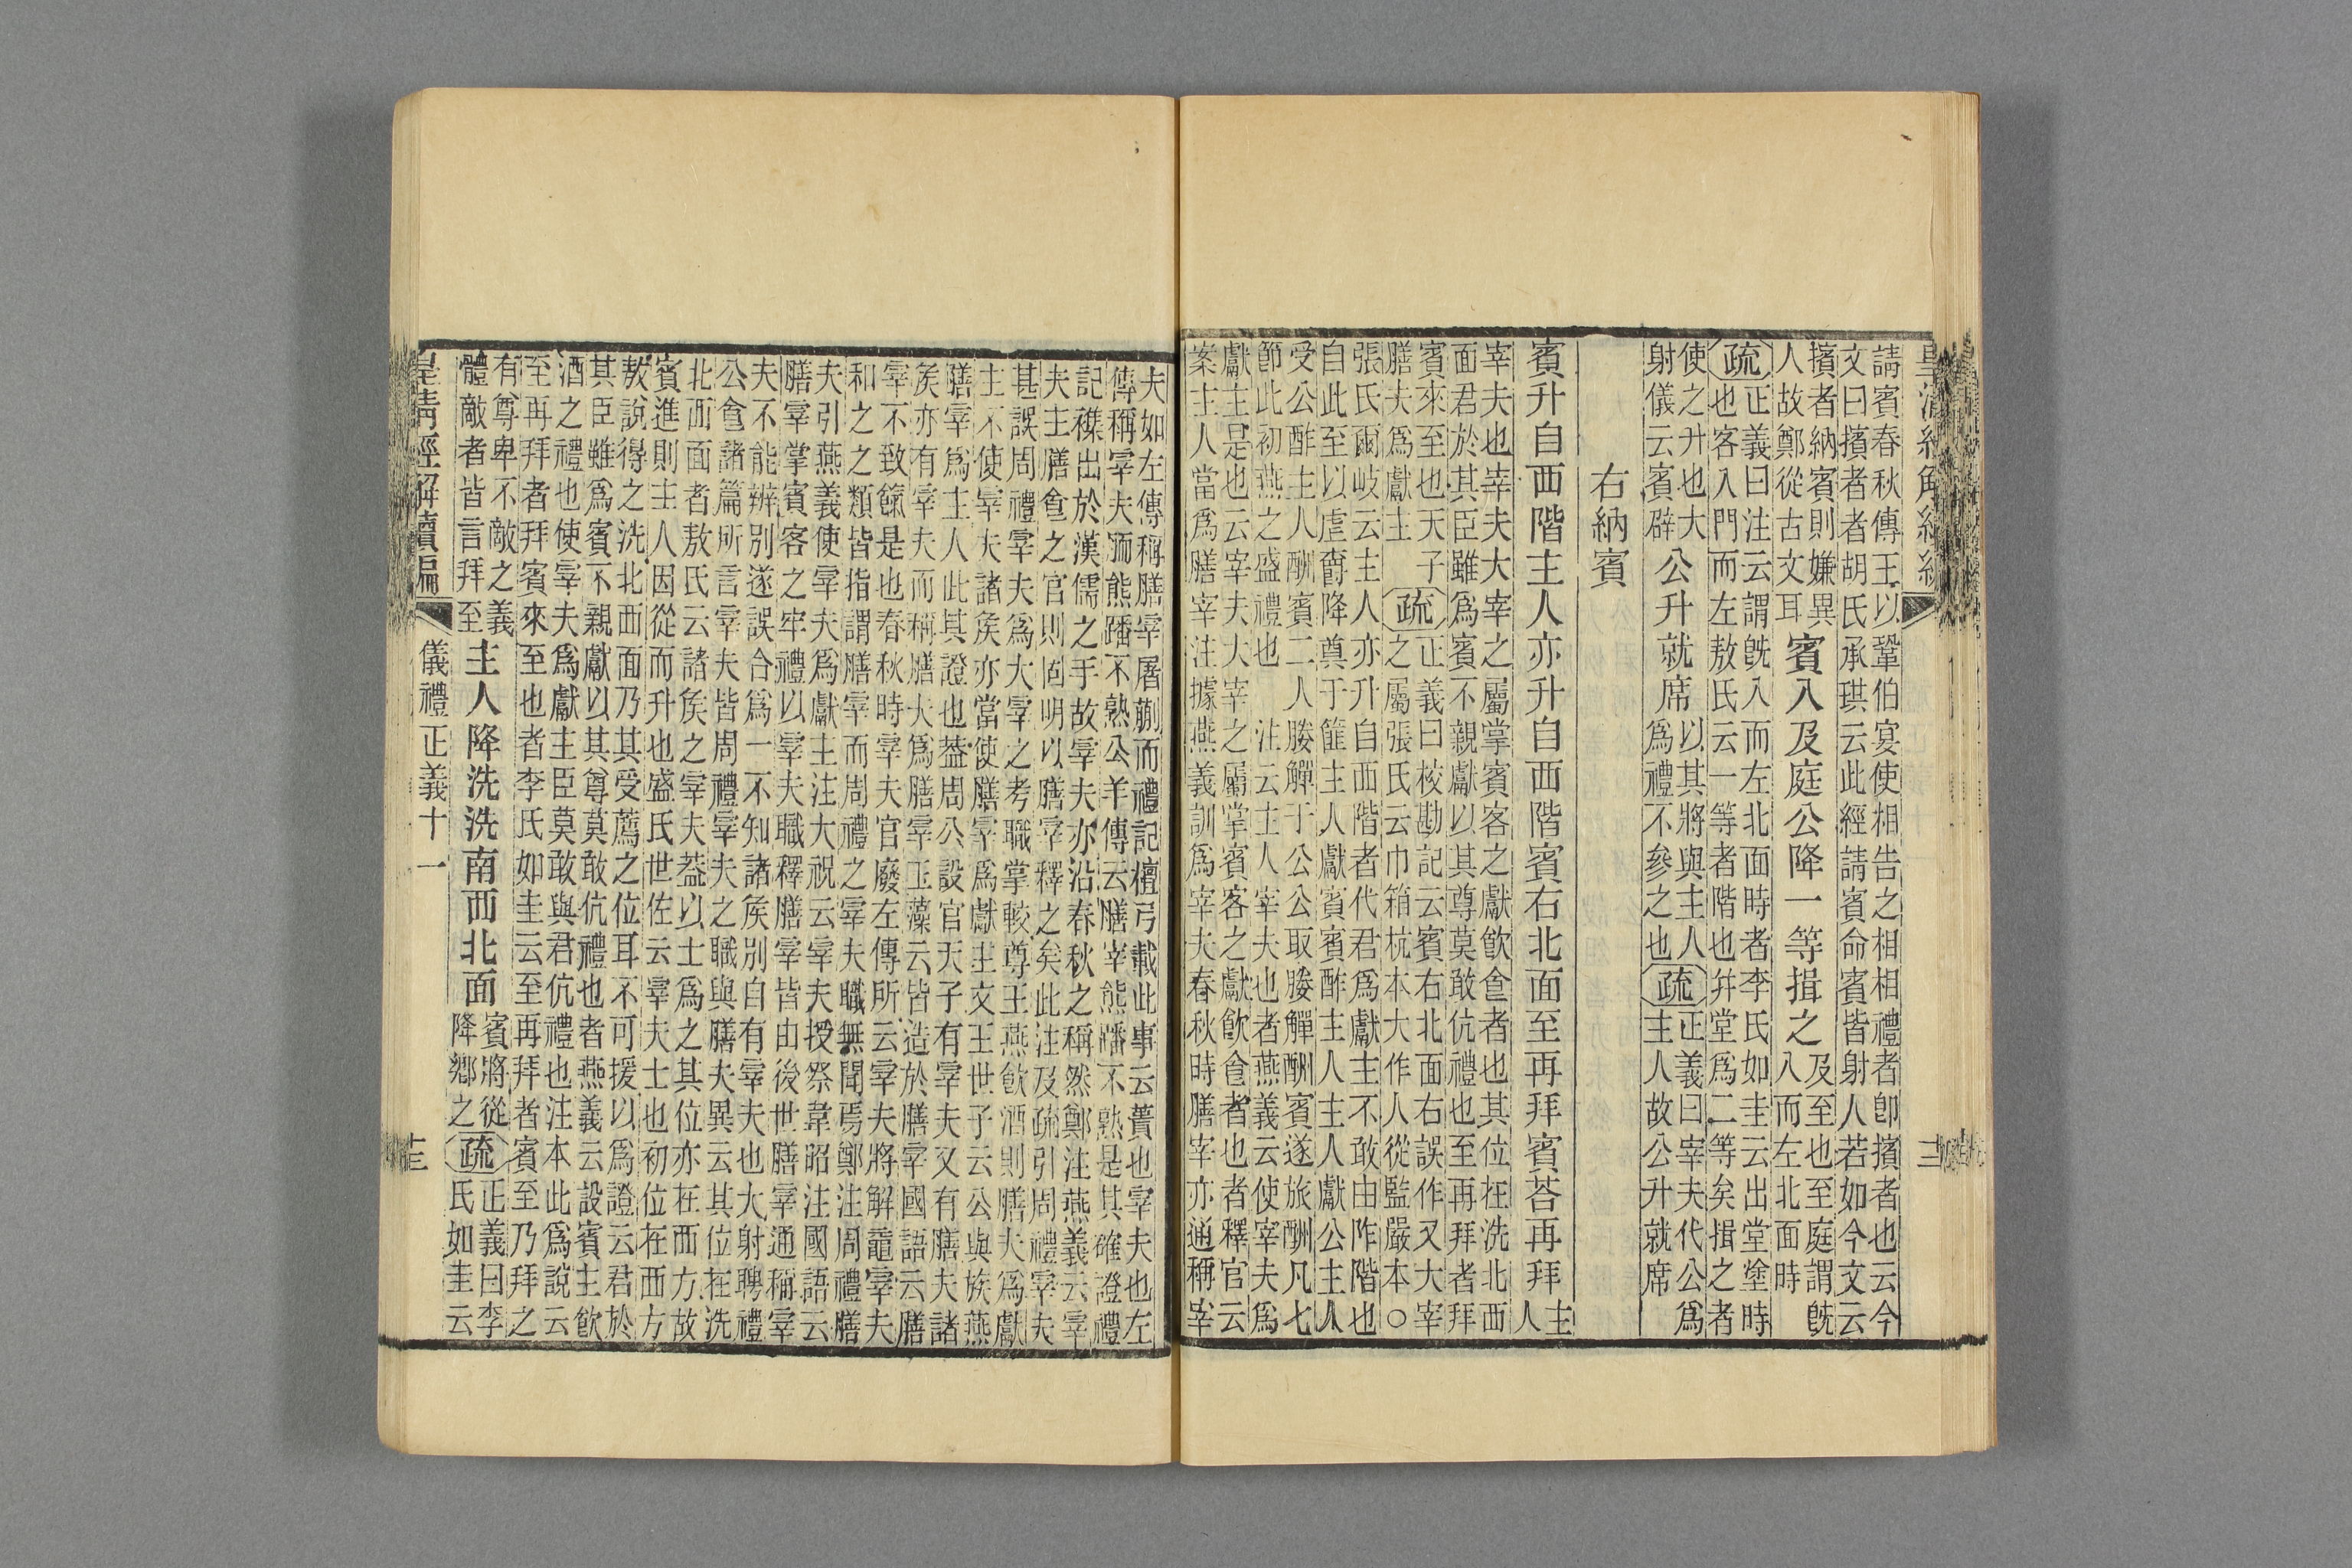 請賓春秋傳王以鞏伯宴使相告之相相禮者卽擯者也云今
文曰擯者者胡氏承珙云此經請賓命賓皆射人若如今文云
擯者納賓則嫌異
人故鄭從古文耳
賓入及庭公降一等揖之
及至也至庭謂旣
入而左北面時
疏
正義曰注云謂旣入而左北面時者李氏如圭云出堂塗時
也客入門而左敖氏云一等者階也幷堂爲二等矣揖之者
使之升也大
射儀云賓辟
公升就席
以其將與主人
爲禮不參之也
疏
正義曰宰夫代公爲
主人故公升就席
右納賓
賓升自西階主人亦升自西階賓右北面至再拜賓荅再拜
主
人
宰夫也宰夫大宰之屬掌賓客之獻飮食者也其位在洗北西
面君於其臣雖爲賓不親獻以其尊莫敢伉禮也至再拜者拜
賓來至也天子
膳夫爲獻主
疏
正義曰校勘記云賓右北面右誤作又大宰
之屬張氏云巾箱杭本大作人從監嚴本○
張氏爾岐云主人亦升自西階者代君爲獻主不敢由阼階也
自此至以虛爵降奠于篚主人獻賓賓酢主人主人獻公主人
受公酢主人酬賓二人媵觶于公公取媵觶酬賓遂旅酬凡七
節此初燕之盛禮也 注云主人宰夫也者燕義云使宰夫爲
獻主是也云宰夫大宰之屬掌賓客之獻飮食者也者釋官云
案主人當爲膳宰注據燕義訓爲宰夫春秋時膳宰亦通稱宰
夫如左傳稱膳宰屠蒯而禮記檀弓載此事云蕢也宰夫也左
傳稱宰夫胹熊蹯不熟公羊傳云膳宰熊蹯不熟是其確證禮
記襍出於漢儒之手故宰夫亦沿春秋之稱然鄭注燕義云宰
夫主膳食之官則固明以膳宰釋之矣此注及疏引周禮宰夫
甚誤周禮宰夫爲大宰之考職掌較尊王燕飮酒則膳夫爲獻
主不使宰夫諸矦亦當使膳宰爲獻主文王世子云公與族燕
膳宰爲主人此其證也葢周公設官天子有宰夫又有膳夫諸
矦亦有宰夫而稱膳夫爲膳宰玉藻云皆造於膳宰國語云膳
宰不致餼是也春秋時宰夫官廢左傳所云宰夫將解黿宰夫
和之之類皆指謂膳宰而周禮之宰夫職無聞焉鄭注周禮膳
夫引燕義使宰夫爲獻主注大祝云宰夫授祭韋昭注國語云
膳宰掌賓客之牢禮以宰夫職釋膳宰皆由後世膳宰通稱宰
夫不能辨別遂誤合爲一不知諸矦別自有宰夫也大射聘禮
公食諸篇所言宰夫皆周禮宰夫之職與膳夫異云其位在洗
北西面者敖氏云諸矦之宰夫葢以士爲之其位亦在西方故
賓進則主人因從而升也盛氏世佐云宰夫士也初位在西方
敖說得之洗北西面乃其受薦之位耳不可援以爲證云君於
其臣雖爲賓不親獻以其尊莫敢伉禮也者燕義云設賓主飮
酒之禮也使宰夫爲獻主臣莫敢與君伉禮也注本此爲說云
至再拜者拜賓來至也者李氏如圭云至再拜者賓至乃拜之
有尊卑不敵之義
體敵者皆言拜至
主人降洗洗南西北面
賓將從
降鄉之
疏
正義曰李
氏如圭云
皇清經解續編
儀禮正義十一